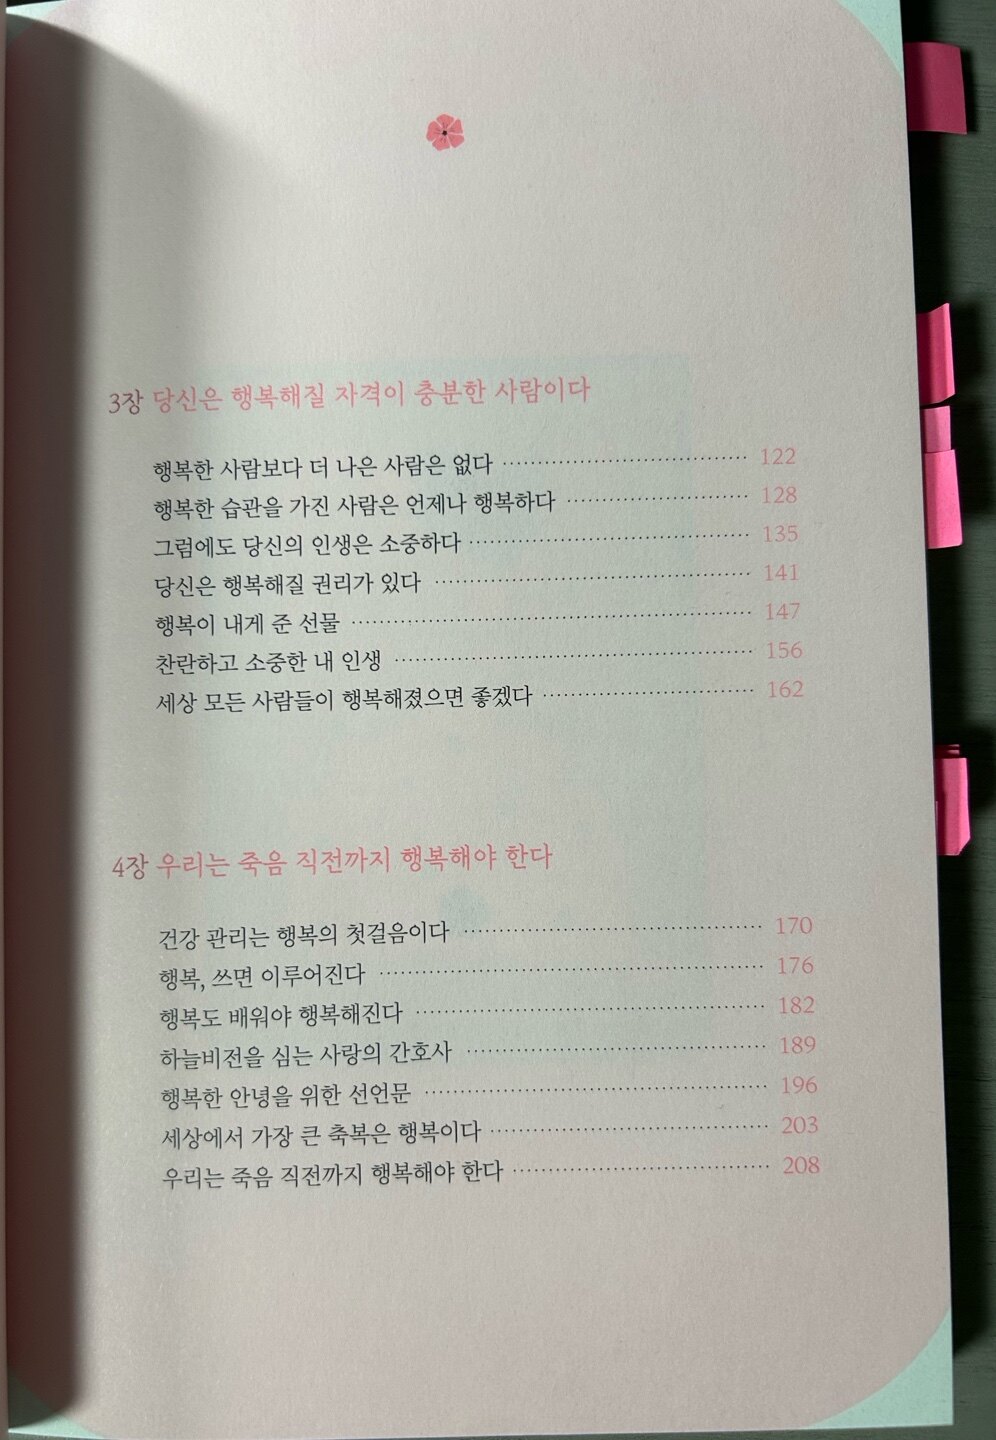 3장 당신은 행복해질 자격이 충분한 사람이다
행복한 사람보다 더 나은 사람은 없다 122
행복한 습관을 가진 사람은 언제나 행복하다 128
그럼에도 당신의 인생은 소중하다 135
당신은 행복해질 권리가 있다 141
행복이 내게 준 선물 147
찬란하고 소중한 내 인생 156
세상 모든 사람들이 행복해졌으면 좋겠다 162
4장 우리는 죽음 직전까지 행복해야 한다
건강 관리는 행복의 첫걸음이다 170
행복, 쓰면 이루어진다 176
행복도 배워야 행복해진다 182
하늘비전을 심는 사랑의 간호사 189
행복한 안녕을 위한 선언문 196
세상에서 가장 큰 축복은 행복이다 203
우리는 죽음 직전까지 행복해야 한다 208